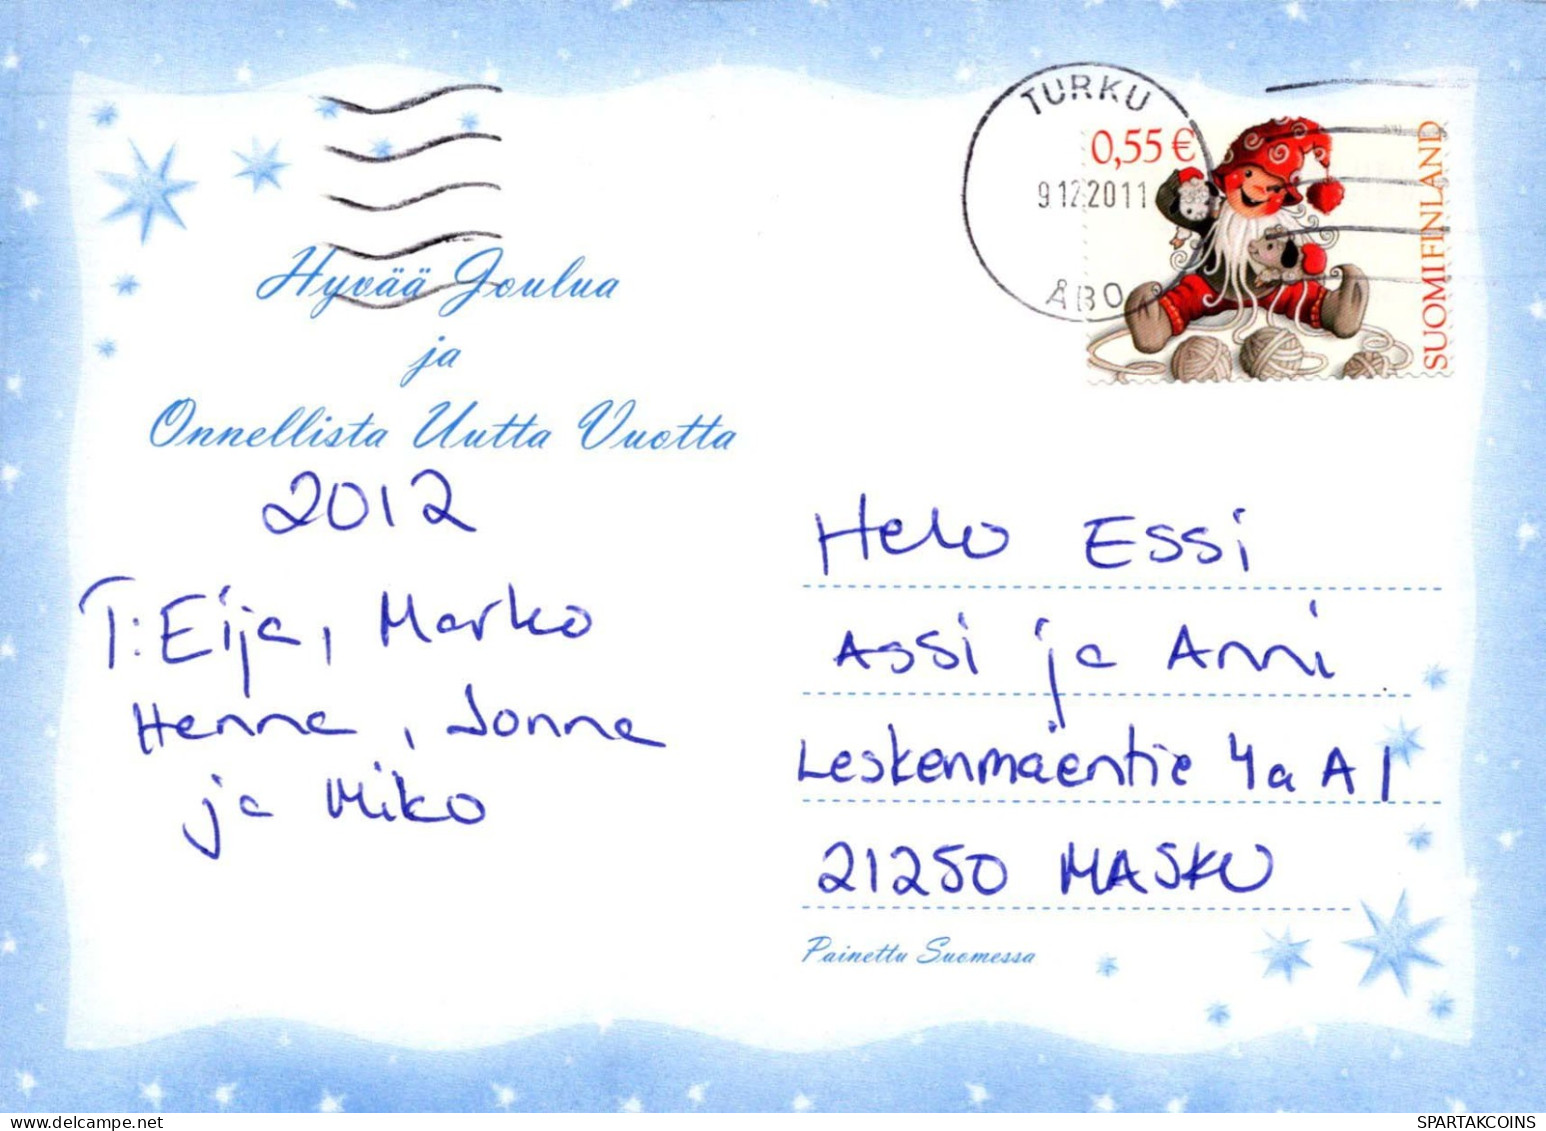 TURKU
0,55 €
9.12.2011
ÅBO
SUOMI FINLAND
Hyvää Joulua
ja
Onnellista Uutta Vuotta
2012
T: Eija, Marko
Henna, Jonna
ja Miko
Helo Essi
Assi ja Anni
Leskenmäentie 4a A 1
21250 MASKU
Painettu Suomessa
delcampe.net
SPARTAKCOINS